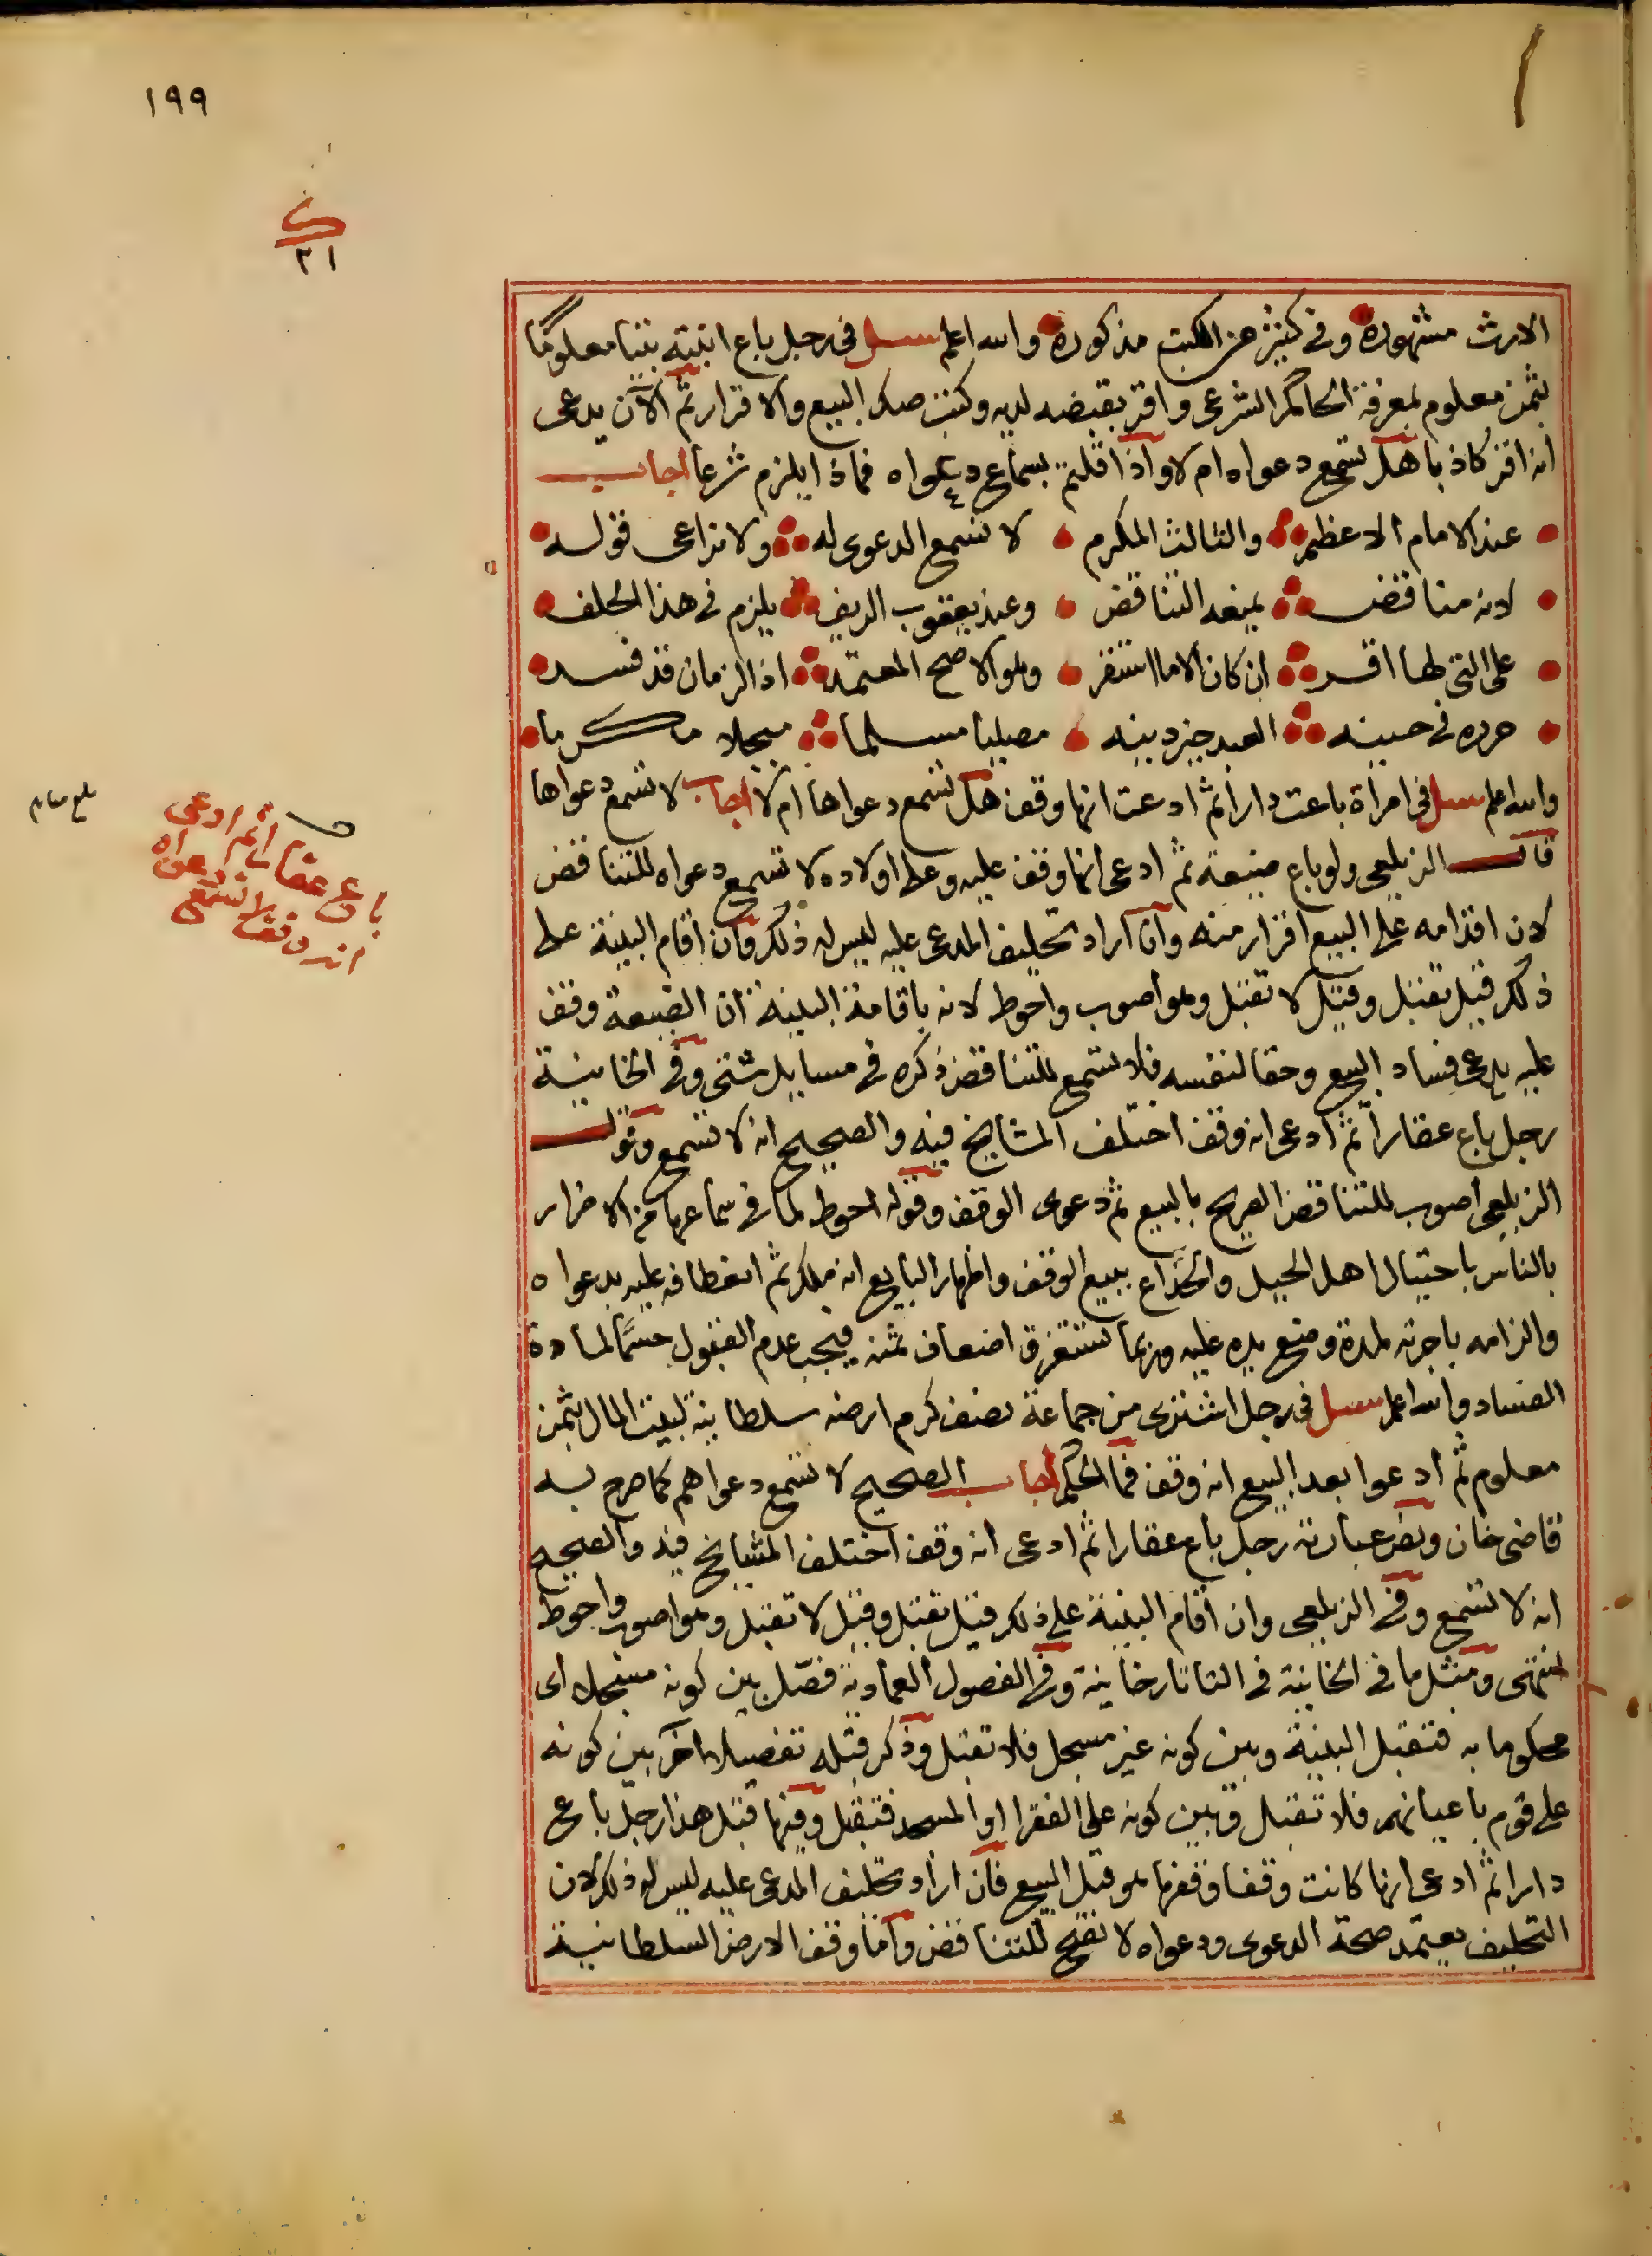 ١٩٩
٣١
الارث مشهورة وفى كثير من الكتب مذكورة والله اعلم سئل فى رجل باع ابنته بيتا معلوما
بثمن معلوم بمعرفة الحاكم الشرعى واقر بقبضه لديه وكتب صك البيع والاقرار ثم الآن يدعى
انه اقر كاذبا هل تسمع دعواه ام لا واذا قلتم بسماع دعواه فماذا يلزم شرعا اجاب
عند الامام الاعظم والثالث المكرم لا تسمع الدعوى له ولا تراعى قوله
لانه مناقض يمنعه التناقض وعند يعقوب الريف يلزم فى هذا الحلف
على التى لها اقر ان كان الاما استقر وهو الاصح المعتمد اذ الزمان قد فسد
حرره فى حينه العبد خير دينه مصليا مسلما مبجلا مكرما
والله اعلم سئل فى امراة باعت دارا ثم ادعت انها وقف هل تسمع دعواها ام لا اجاب لا تسمع دعواها
قال الزيلعى ولو باع ضيعة ثم ادعى انها وقف عليه وعلى اولاده لا تسمع دعواه للتناقض
لان اقدامه على البيع اقرار منه وان اراد تحليف المدعى عليه ليس له ذلك وان اقام البينة على
ذلك قيل تقبل وقيل لا تقبل وهو اصوب واحوط لانه باقامة البينة ان الضيعة وقف
عليه يدعى فساد البيع وحقا لنفسه فلا تسمع للتناقض ذكره فى مسايل شتى وفى الخانية
رجل باع عقارا ثم ادعى انه وقف اختلف المشايخ فيه والصحيح انه لا تسمع وقول
الزيلعى اصوب للتناقض الصريح بالبيع ثم دعوى الوقف وقوله احوط لما فى سماعها من الاضرار
بالناس باحتيال اهل الحيل والخداع ببيع الوقف واظهار البايع انه ملك ثم انعطافه عليه بدعواه
والزامه باجرته لمدة وضع يده عليه وربما تستغرق اضعاف ثمنه فيجب عدم القبول حسما لمادة
الفساد والله اعلم سئل فى رجل اشترى من جماعة نصف كرم ارضه سلطانية لبيت المال بثمن
معلوم ثم ادعوا بعد البيع انه وقف فما الحكم اجاب الصحيح لا تسمع دعواهم كما صرح به
قاضى خان ونص عبارته رجل باع عقارا ثم ادعى انه وقف اختلف المشايخ فيه والصحيح
انه لا تسمع وفى الزيلعى وان اقام البينة على ذلك قيل تقبل وقيل لا تقبل وهو اصوب واحوط
انتهى ومثل ما فى الخانية فى التاتارخانية وفى الفصول العمادية فصّل بين كونه مسجل اى
محكوما به فتقبل البينة وبين كونه غير مسجل فلا تقبل وذكر قبله تفصيلا آخر بين كونه
على قوم باعيانهم فلا تقبل وبين كونه على الفقرا او المسجد فتقبل وفيها قبل هذا رجل باع
دارا ثم ادعى انها كانت وقفا وقفها هو قبل البيع فان اراد تحليف المدعى عليه ليس له ذلك لان
التحليف يعتمد صحة الدعوى ودعواه لا تصح للتناقض واما وقف الارض السلطانية
باع عقارا ثم ادعى
انه وقف لا تسمع دعواه